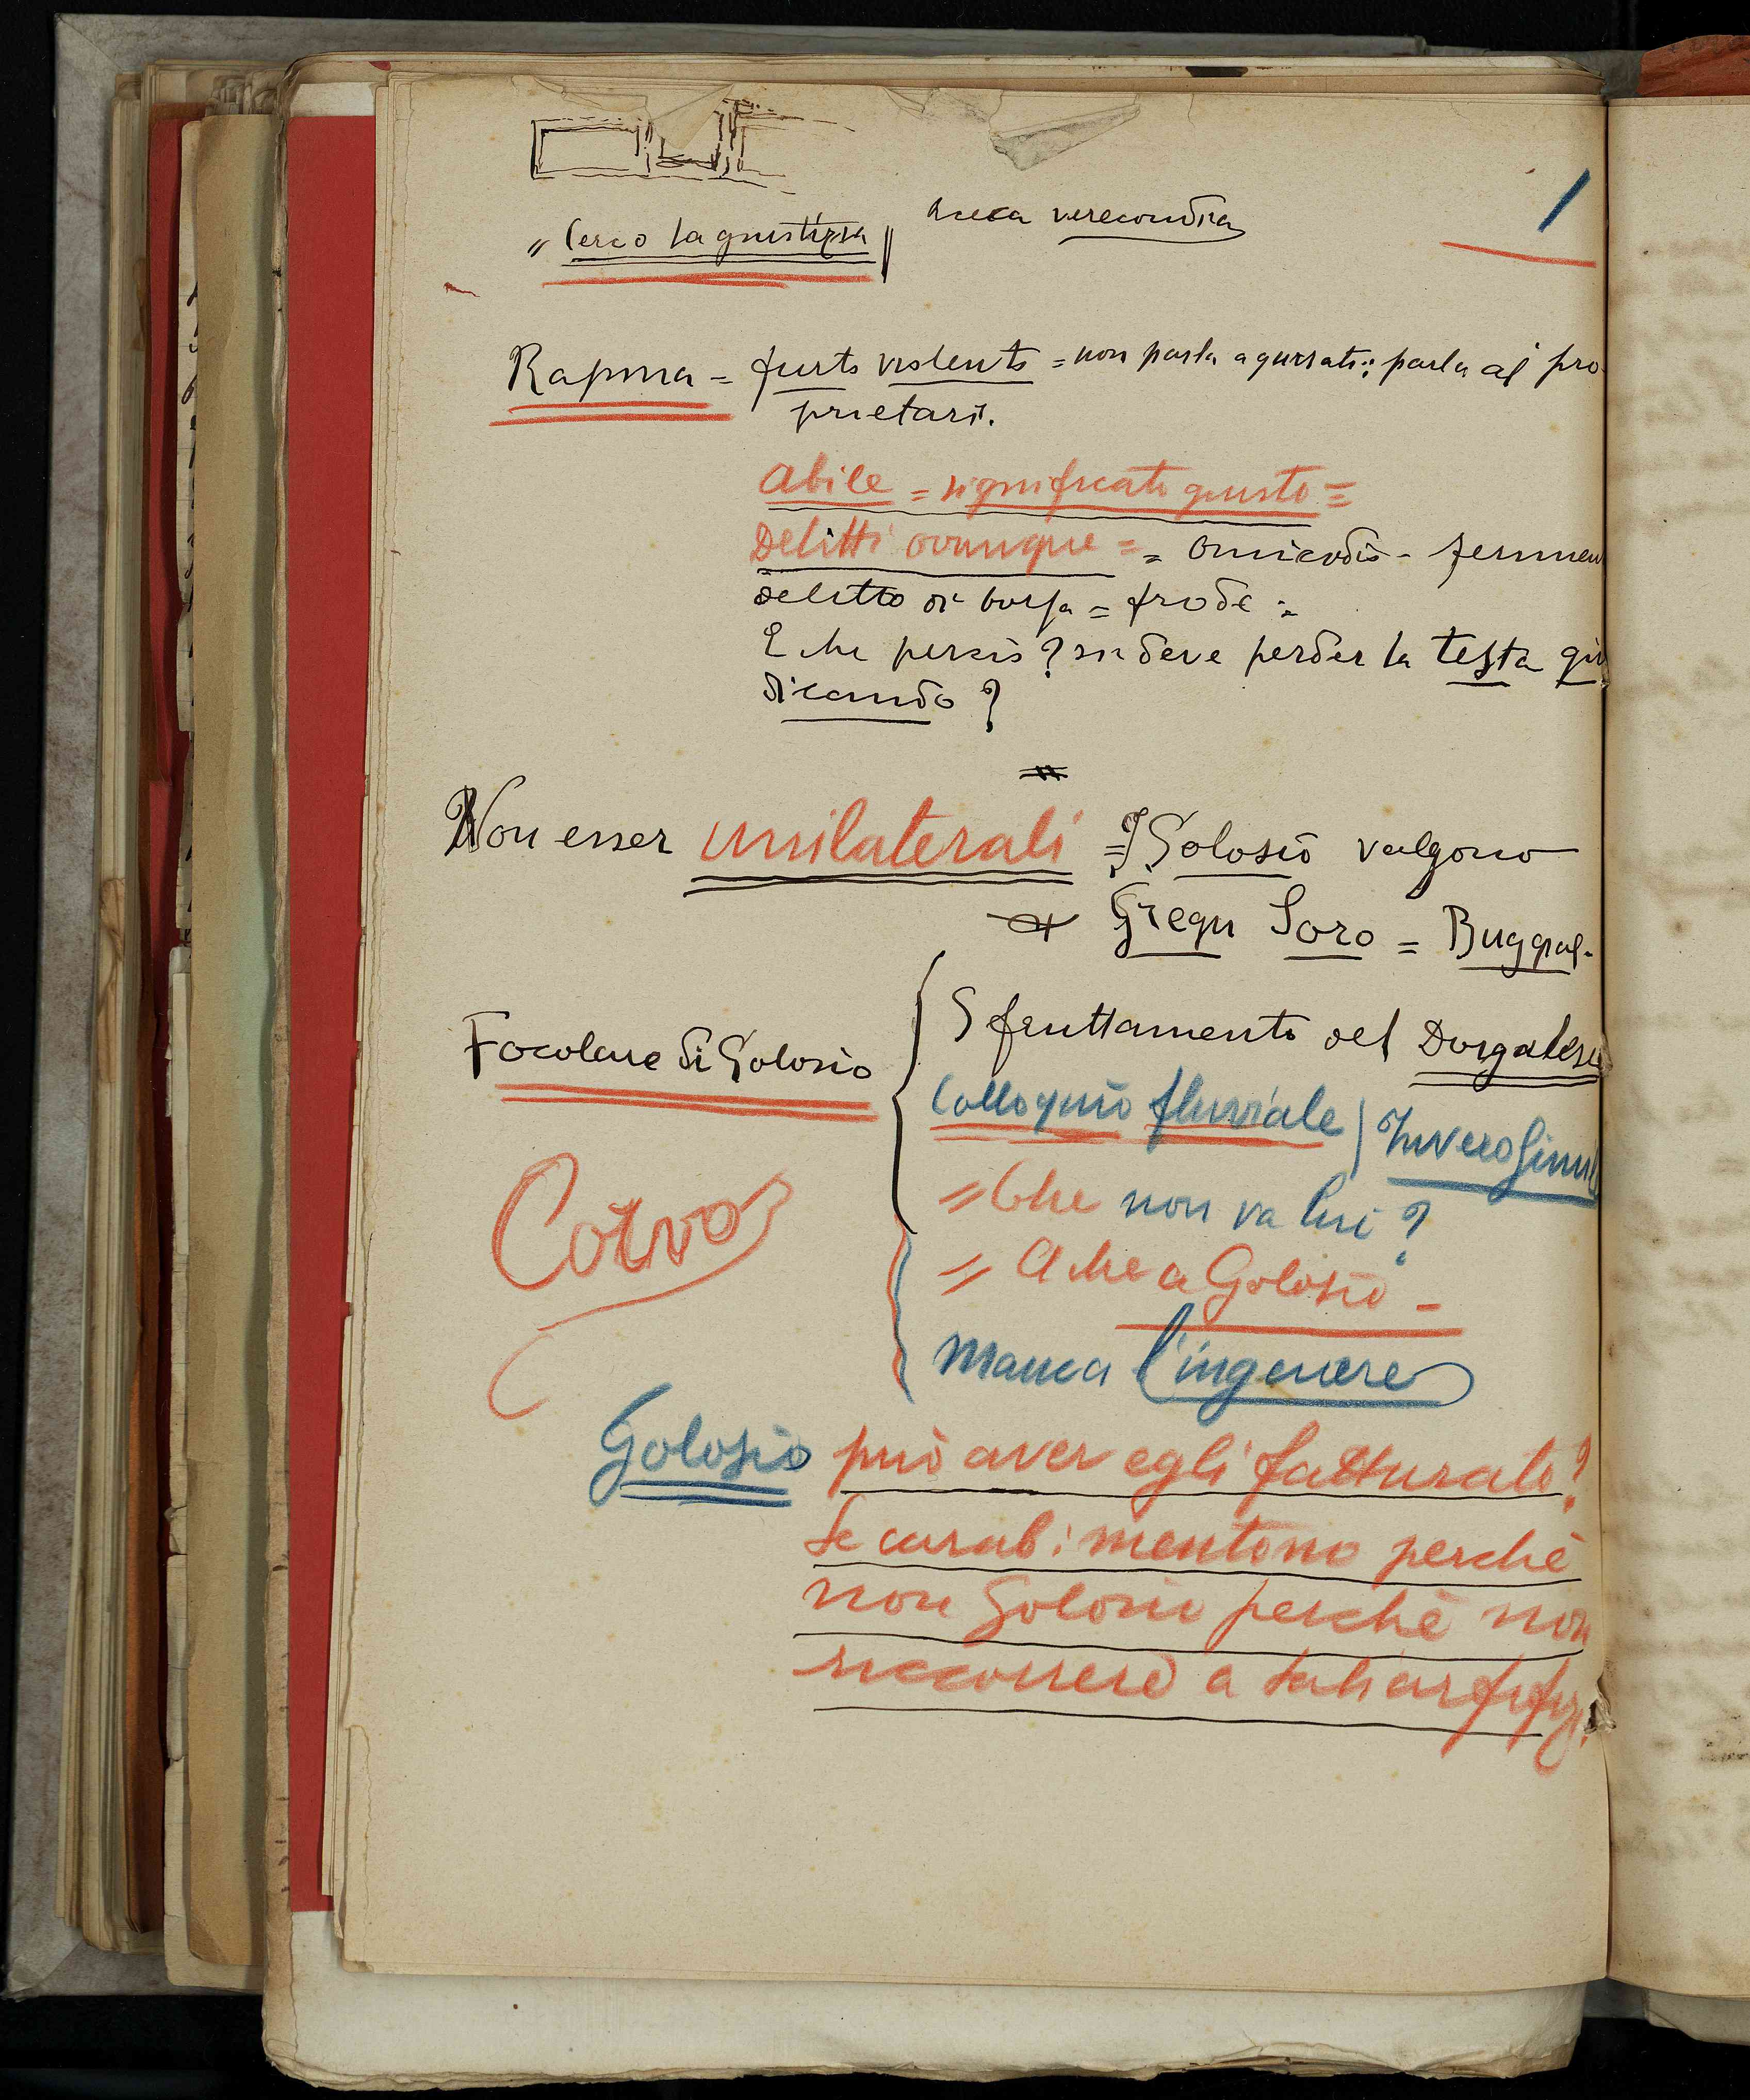 1
„ Cerco la giustizia „ senza verecondia
Rapina = furto violento = non parla a giurati: parla ai pro
prietari.
abile = significato giusto =
Delitti ovunque = = omicidio - ferimen
delitto di borsa = frode =
E che perciò? si deve perder la testa giu
dicando?
Non esser unilaterali = I Golosio valgono
Gregu Soro = Buggial.
Focolare di Golosio
Sfruttamento del Dorgalese
Colloquio fluviale | Inverosimil
= Che non va lui?
= A che a Golosio -
Corvo
Manca l'ingenere
Golosio può aver egli fatturato?
Se carab: mentono perchè
non Golosio perchè non
riccorrere a tali artifizi.